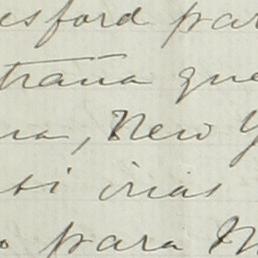 esford par
traña que
na, New Y
si irias
o para M